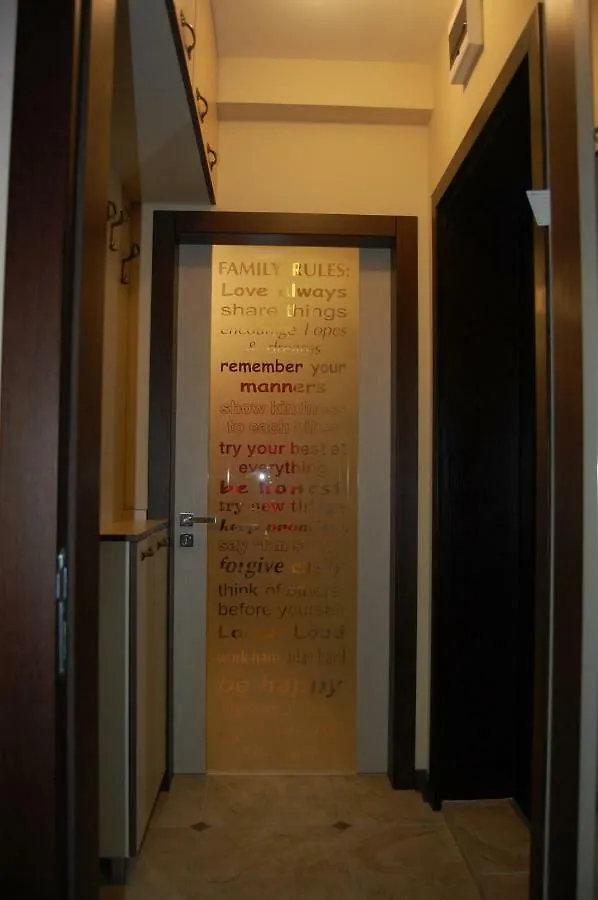 FAMILY RULES:
Love always
share things
encourage hopes
& dreams
remember your
manners
show kindness
to each other
try your best at
everything
be honest
try new things
keep promises
say
forgive
think of others
before yourself
Laugh Loud
work hard play hard
be happy